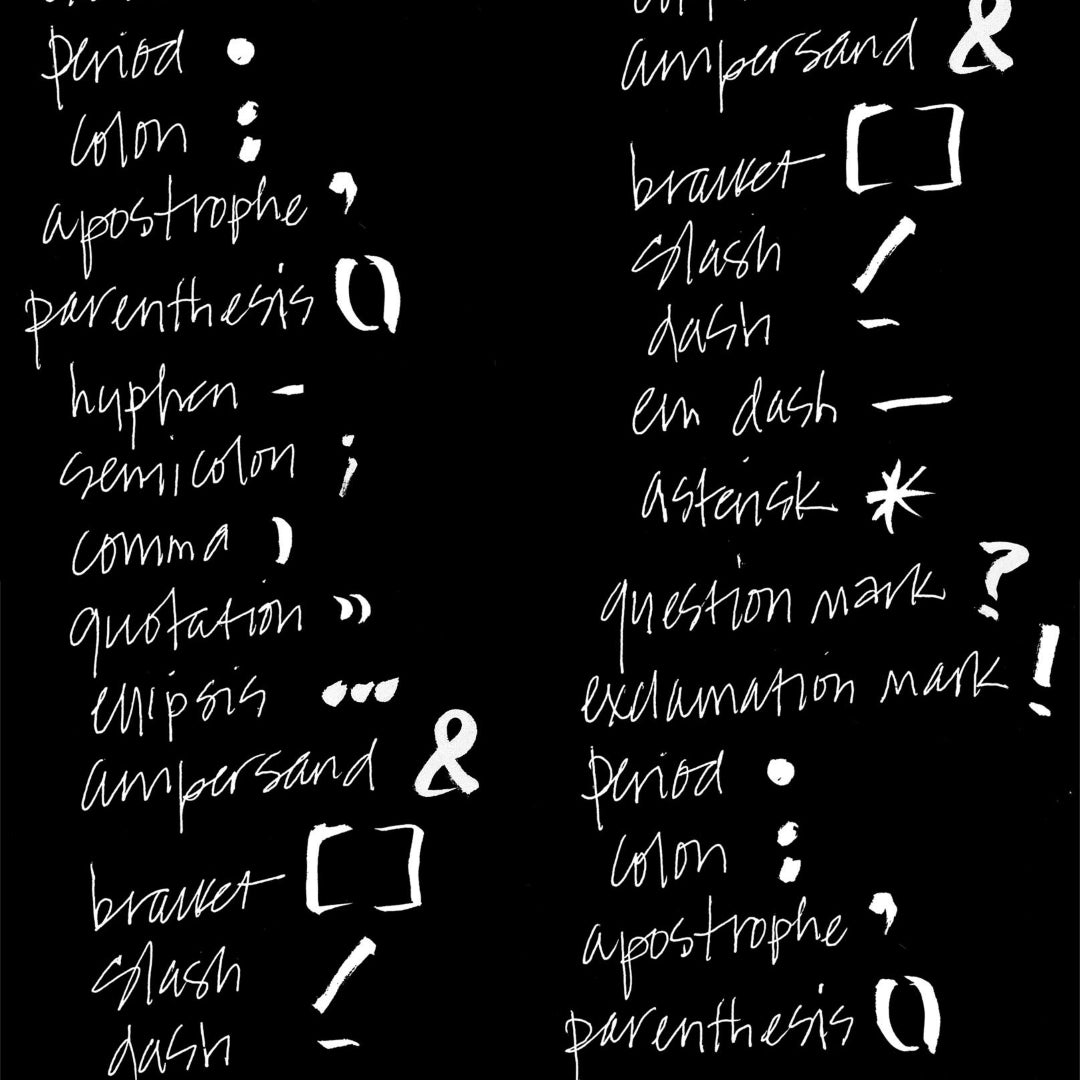 period •
colon :
apostrophe ’
parenthesis ()
hyphen -
semicolon ;
comma )
quotation ))
ellipsis ...
ampersand &
bracket []
slash /
dash –
ampersand &
bracket []
slash /
dash –
em dash —
asterisk *
question mark ?
exclamation mark !
period •
colon :
apostrophe ’
parenthesis ()